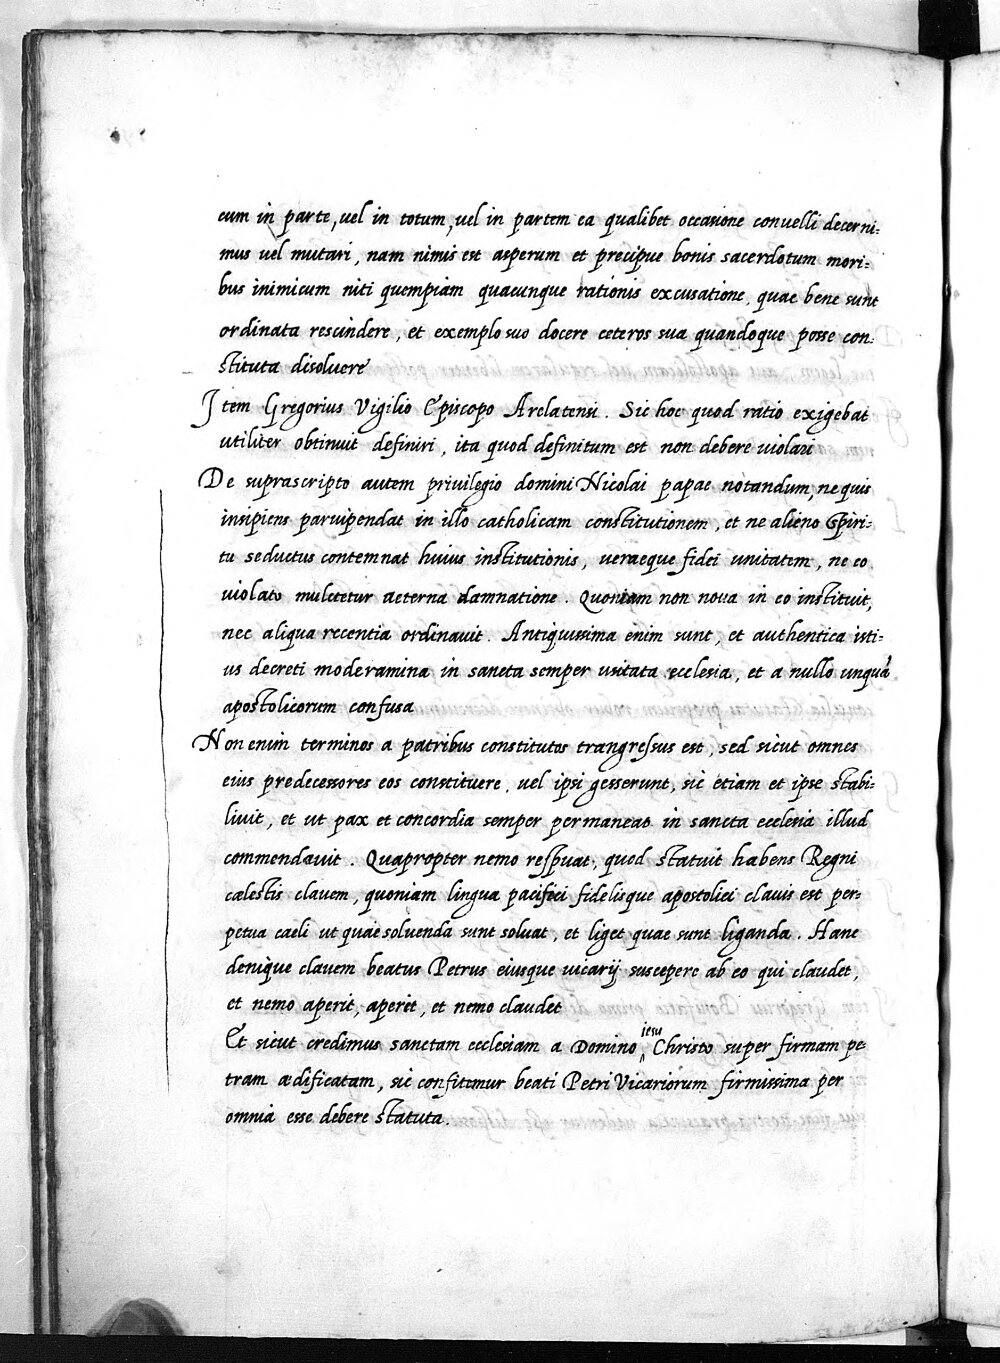 cum in parte, vel in totum, vel in partem ea qualibet occasione convelli decerni=
mus vel mutari, nam nimis est asperum et precipue bonis sacerdotum mori=
bus inimicum niti quempiam quacunque rationis excusatione, quae bene sunt
ordinata rescindere, et exemplo suo docere ceteros sua quandoque posse con=
stituta disoluere
Item Gregorius Vigilio Episcopo Arelatensi. Sic hoc quod ratio exigebat
utiliter obtinuit definiri, ita quod definitum est non debere violari
De suprascripto autem privilegio domini Nicolai papae notandum, ne quis
insipiens parvipendat in illo catholicam constitutionem, et ne alieno Spiri=
tu seductus contemnat huius institutionis, veraeque fidei unitatem, ne eo
violato mulctetur aeterna damnatione. Quoniam non nova in eo instituit,
nec aliqua recentia ordinavit. Antiquissima enim sunt, et authentica isti=
us decreti moderamina in sancta semper usitata ecclesia, et a nullo unquã
apostolicorum confusa
Non enim terminos a patribus constitutos trangressus est, sed sicut omnes
eius predecessores eos constituere, vel ipsi gesserunt, sic etiam et ipse stabi=
livit, et ut pax et concordia semper permaneat in sancta ecclesia illud
commendavit. Quapropter nemo respuat, quod statuit habens Regni
cælestis clavem, quoniam lingua pacifici fidelisque apostolici clavis est per=
petua caeli ut quae solvenda sunt soluat, et liget quae sunt liganda. Hanc
denique clavem beatus Petrus eiusque vicarij suscepere ab eo qui claudet,
et nemo aperit, aperit, et nemo claudet
Et sicut credimus sanctam ecclesiam a Domino iesu Christo super firmam pe
tram ædificatam, sic confitemur beati Petri Vicariorum firmissima per
omnia esse debere statuta.